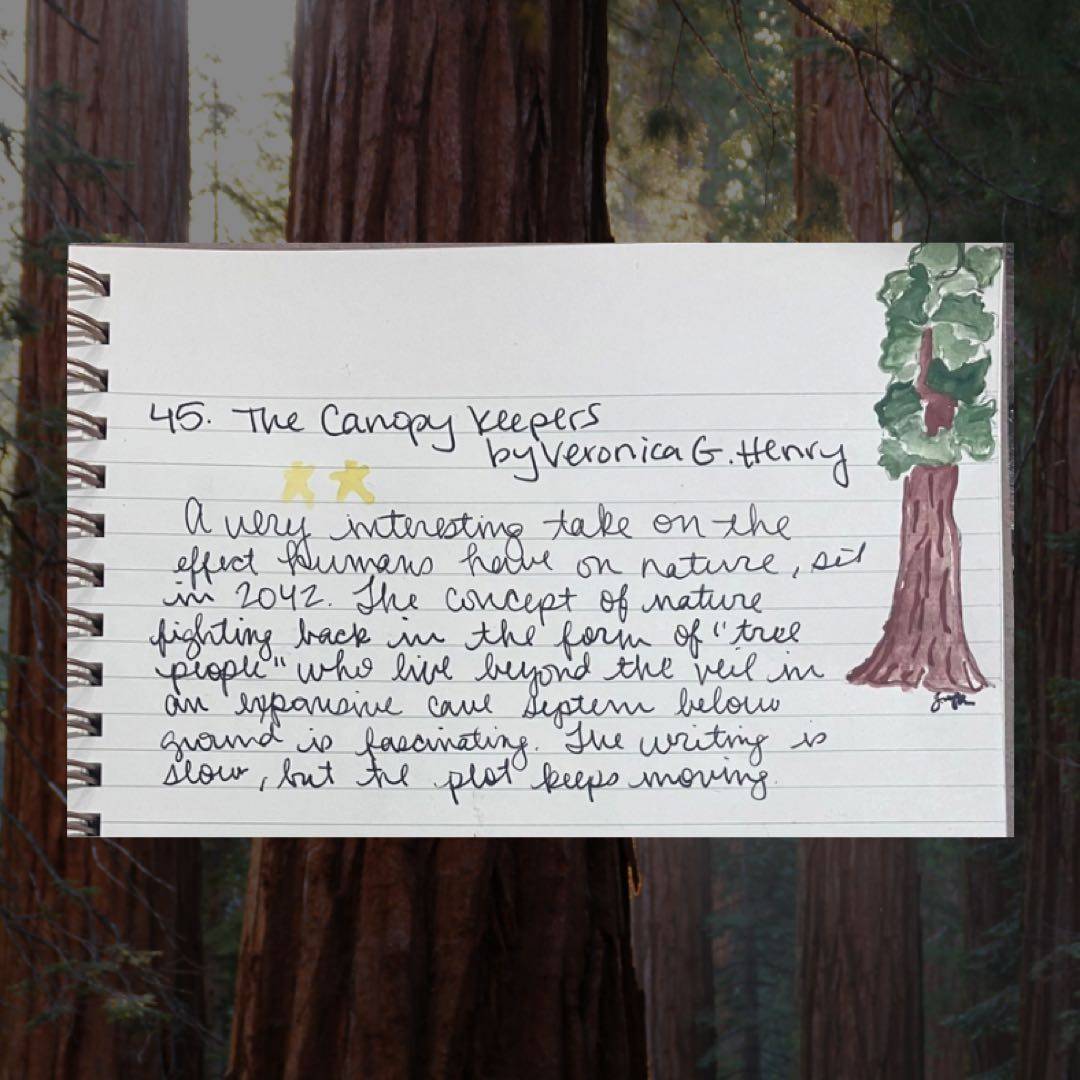 45. The Canopy Keepers
by Veronica G. Henry
A very interesting take on the
effect humans have on nature, set
in 2042. The concept of nature
fighting back in the form of "tree
people" who live beyond the veil in
an expansive cave system below
ground is fascinating. The writing is
slow, but the plot keeps moving.